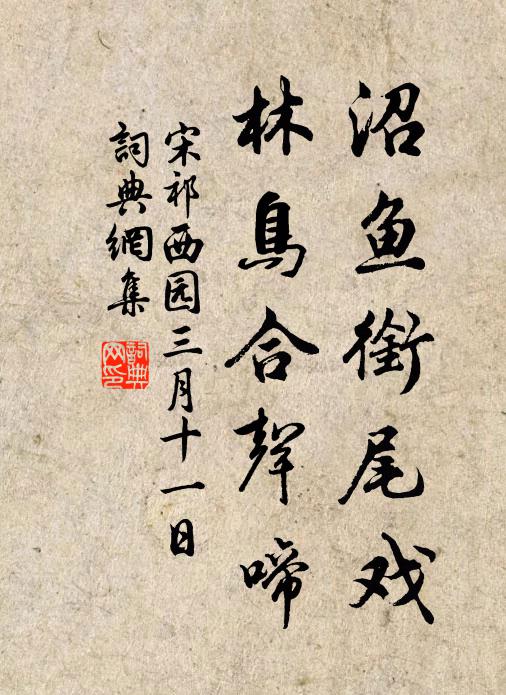 沼鱼衔尾戏
林鳥合聲啼
宋祁西园三月十一日
詞典網集
詞典网印